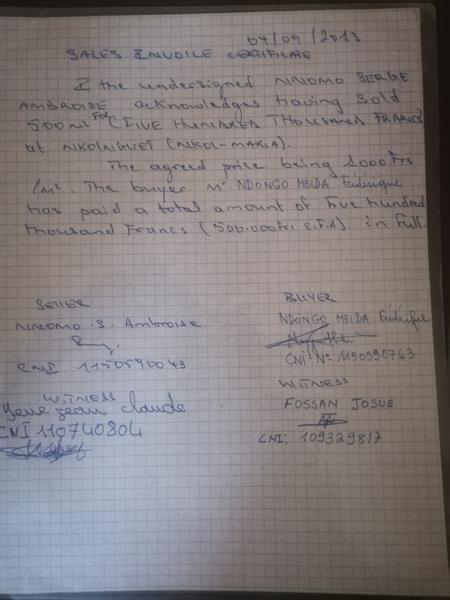 04/09/2013
SALES INVOICE CERTIFICATE
I the undersigned NNOMO SERGE
AMBROISE acknowledges having sold
500m² For (FIVE HUNDRED THOUSAND FRANCS
at NKOLNGUET (NKOL-MAKIA).
The agreed price being 1000 Frs
/m². The buyer Mr NDONGO MBIDA Frédérique
has paid a total amount of Five hundred
thousand Francs (500.000frs C.F.A) in full.
SELLER
NNOMO .S. Ambroise
CNI 1150590043
WITNESS
Jean claude
CNI 110740804
BUYER
NDONGO MBIDA Frédérique
CNI N° 1150590743
WITNESS
FOSSAN JOSUE
CNI: 109329817